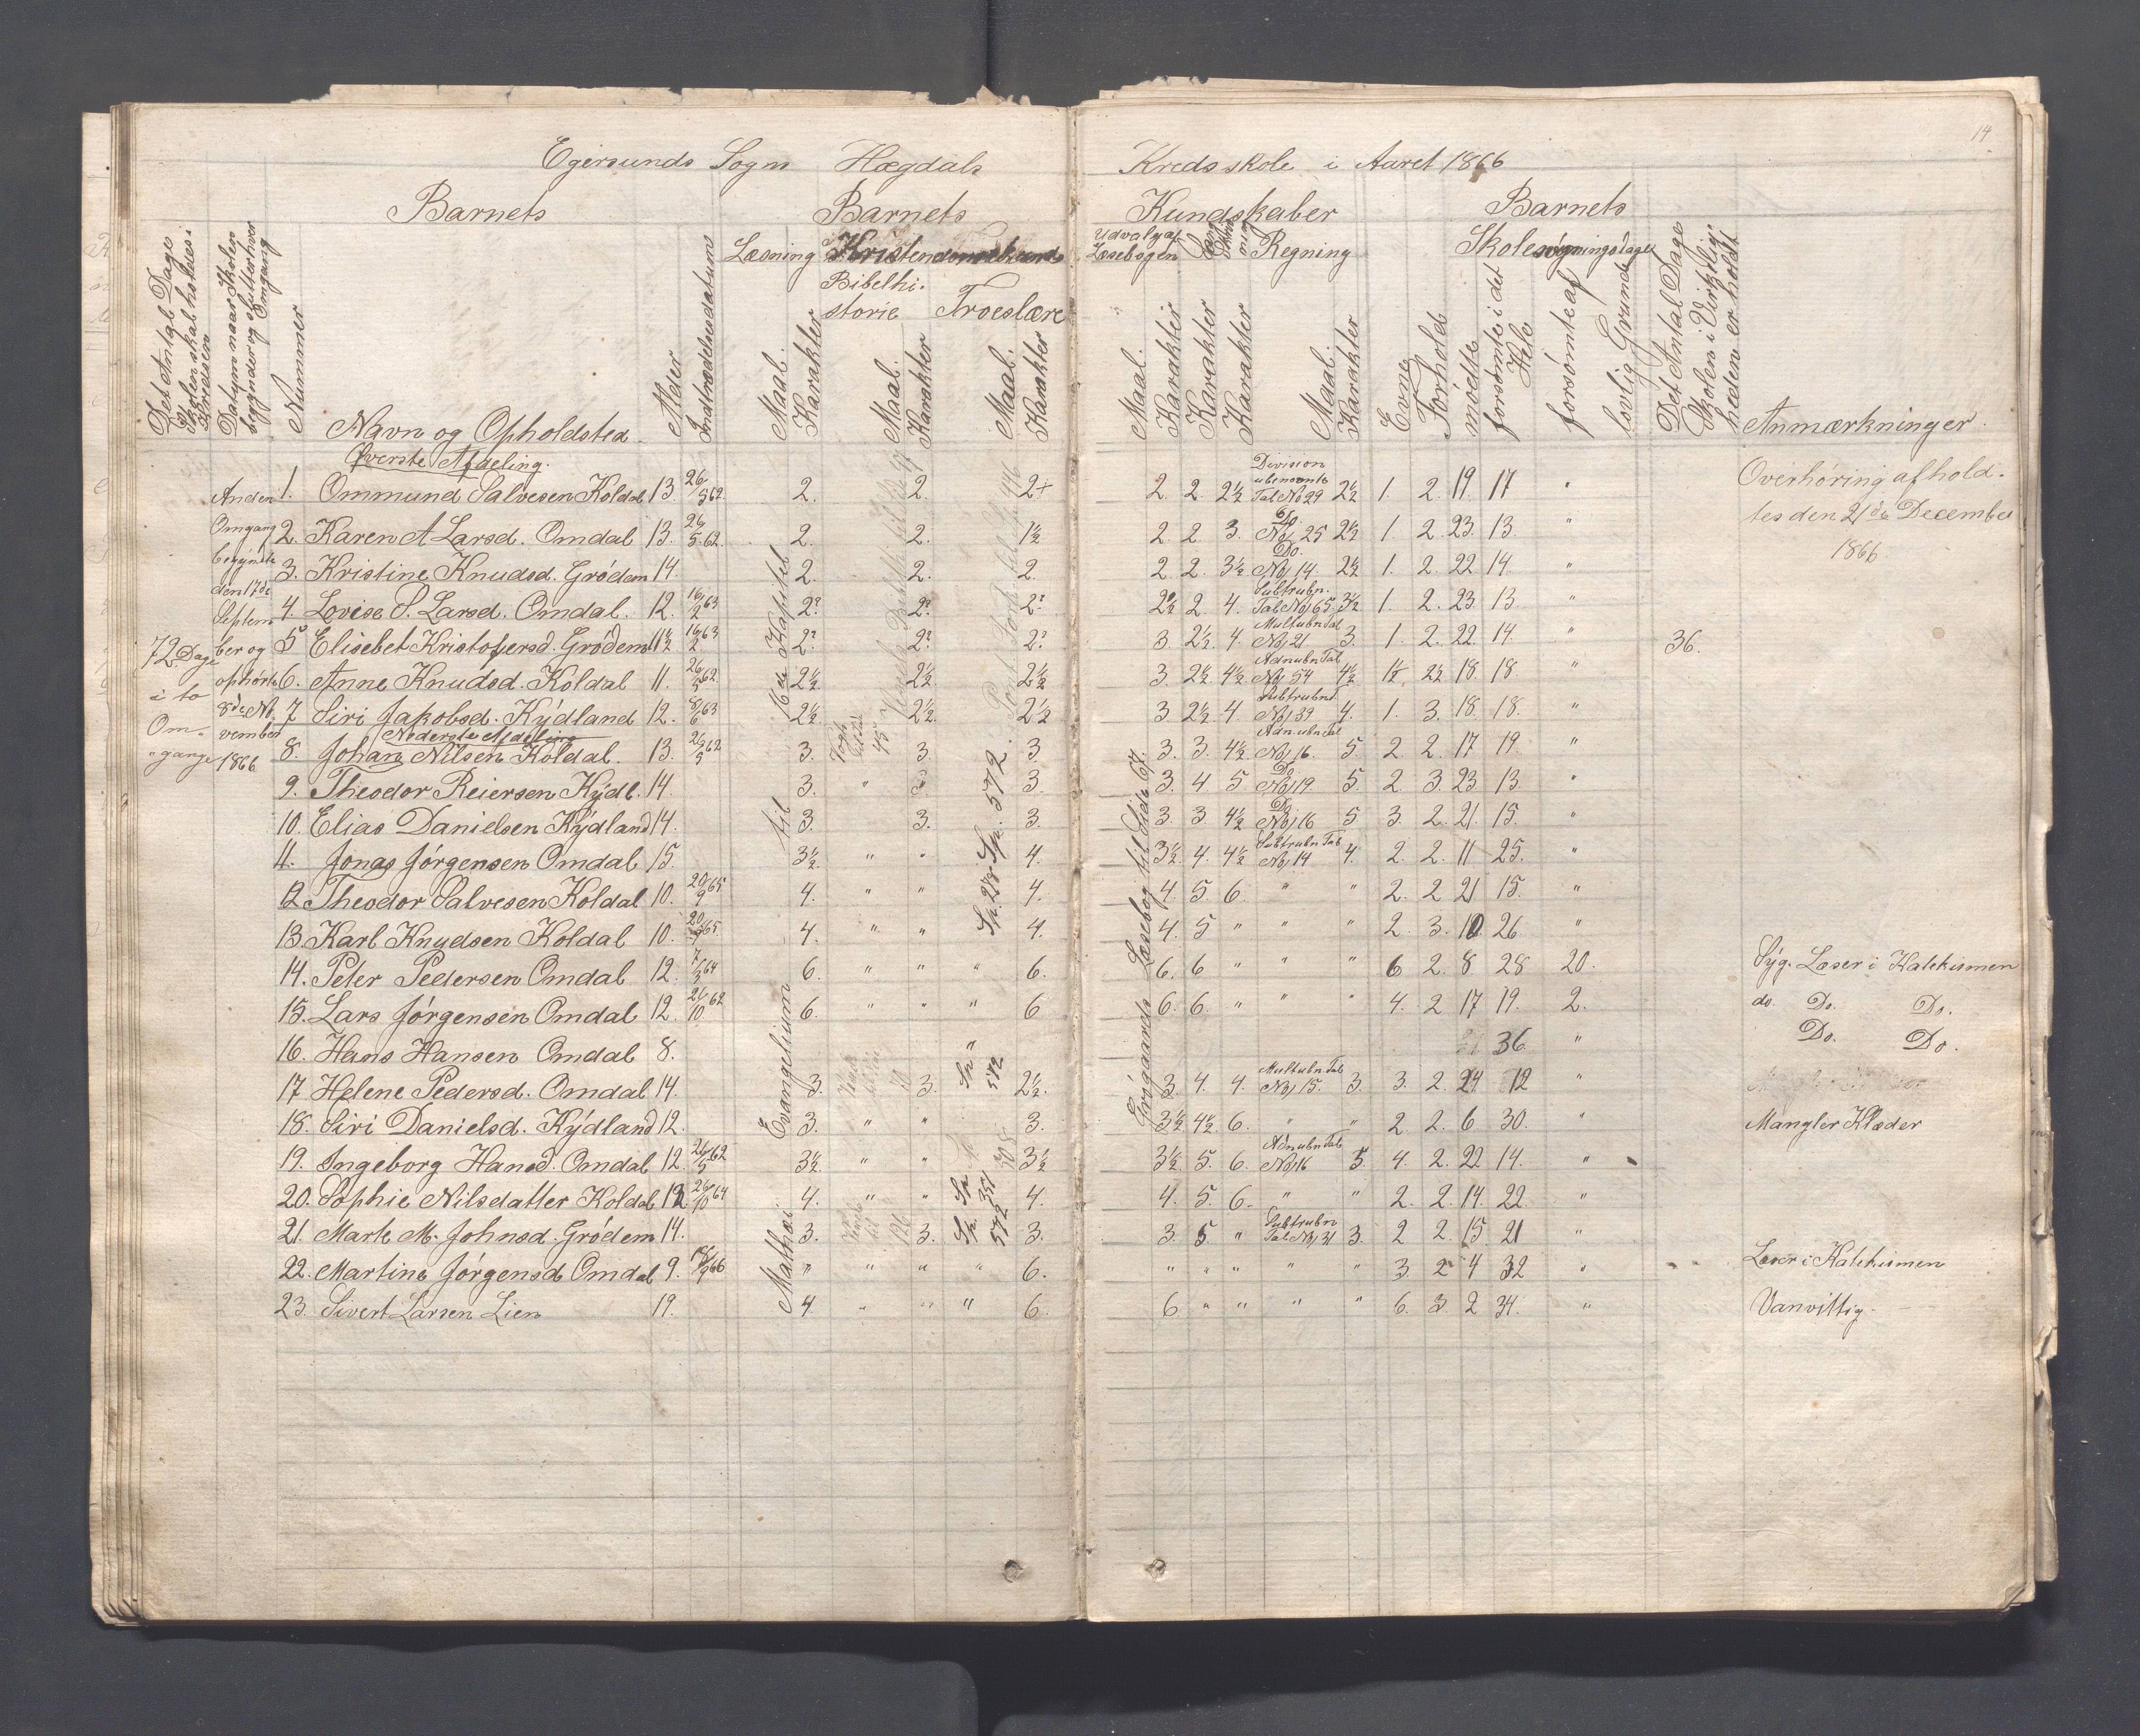 14
Egersunds Sogn Hægdals Kredsskole i Aaret 1866
Barnets Barnets Kundskaber Barnets
Læsning Kristendomskunds Udvalg af Læsebogen Sang Skrivning Regning Skolesøgningsdage
Bibelhistorie Troeslære
Det Antal Dage Skolen skal holdes i Kredsen
Datum naar Skolen begynder og slutter hver Omgang
Nummer
Navn og Opholdsted
Alder
Indtrædelsesdatum
Maal. Karakter Maal. Karakter Maal. Karakter
Maal. Karakter Karakter Karakter Maal. Karakter
Evne Forhold mødte forsømte i det Hele forsømte af lovlig Grund
Det Antal Dage Skolen i Virkeligheden er holdt
Anmærkninger
Øverste Afdeling.
72 Dage i to Omgange
Anden Omgang begyndte den 17de September og ophørte 8de November 1866
16de Kapitel til Evangelium Mathæi
Grøgaards Læsebog til Side 67.
36.
Overhøring afholdtes den 21de December 1866
1. Ommund Salvesen Koldal 13. 26/5 62. 2. 2. 2+ 2. 2. 2½ Division ubenævnte Tal No 29 2½ 1. 2. 19. 17 "
2. Karen A Larsd. Omdal 13. 26/5 62. 2. 2. 1½ 2 2 3. Do No 25 2½ 1 2. 23. 13. "
3. Kristine Knudsd. Grødem 14. 2. 2. 2. 2 2. 3½ Do. No 14. 2½ 1. 2. 22 14. "
4. Lovise S. Larsd. Omdal. 12. 16/2 63 2? 2? 2? 2½ 2 4. Subtr ubn. Tal No 65. 3½ 1. 2. 23. 13. "
5 Elisebet Kristofersd. Grødem 11½ 16/2 63 2? 2? 2? 3. 2½ 4. Mult ubn Tal No 21 3. 1. 2. 22. 14. "
6. Anne Knudsd. Koldal 11. 26/5 62 2½ 2½ 2½ 3. 2½ 4½ Adn ubn Tal No 54 4½ 1½ 2½ 18. 18. "
7 Siri Jakobsd. Kÿdland 12. 8/6 63 2½ 2½. 2½ 3 2½ 4. Subtr ubn T. No 39 4. 1. 3. 18. 18. "
Nederste Afdeling
8. Johan Nilsen Koldal. 13. 26/5 62 3. 3. 3 3. 3. 4½ Adn ubn Tal No 16. 5. 2. 2. 17 19. "
9. Theodor Reiersen Kÿdl. 14. 3. " 3. 3. 3. 4 5 Do No 19 5. 2. 3. 23. 13. "
10. Elias Danielsen Kÿdland 14. 3. 3. 3. 3. 3. 4½ Do No 16 5 3. 2. 21. 15. "
11. Jonas Jørgensen Omdal 15. 3½ " " 4. 3½ 4. 4½ Subtr ubn Tal No 14 4. 2. 2. 11 25. "
12 Theodor Salvesen Koldal 10. 20/9 65 4. " " 4. 4 5 6. " " 2. 2 21 15. "
13. Karl Knudsen Koldal 10. 20/9 65. 4. " " 4. 4. 5 " " " 2. 3. 10 26 "
14. Peter Pedersen Omdal 12. 7/3 64 6. " " " 6. 6. 6 " " " 6 2. 8 28 20. Syg. Læser i Katekismen
15. Lars Jørgensen Omdal 12 21/10 62 6. " " " 6 6. 6. " " " 4. 2 17 19. 2. do. Do. Do.
16. Hans Hansen Omdal 8. " 36 " Do. Do.
17 Helene Pedersd. Omdal 14. 3. 3. 2½. 3. 4. 4. Mult ubn Tal No 15. 3. 3. 2. 24 12 "
18. Siri Danielsd. Kÿdland 12. 3. " " 3. 3½ 4½. 6. " " 2 2. 6 30. " Mangler Klæder
19. Ingeborg Hansd. Omdal 12. 26/5 62 3½ " " 3½ 3½ 5. 6. Adn ubn Tal No 16 5. 4. 2. 22 14. "
20. Sophie Nilsdatter Koldal 12. 26/10 64 4. " " 4. 4. 5. 6. " " 2. 2. 14. 22. "
21. Marte M. Johnsd. Grødem 14. 3. 3. 3. 3. 5. " Subtr ubn Tal No 31 3. 2 2. 15. 21 "
22. Martine Jørgensd Omdal 9. 66 " " " " 6. " " " " " 3. 2 4 32 " Læser i Katekismen
23. Sivert Larsen Lien 19. 4. " " " 6. 6 " " " " 6. 3. 2 34. " Vanvittig.